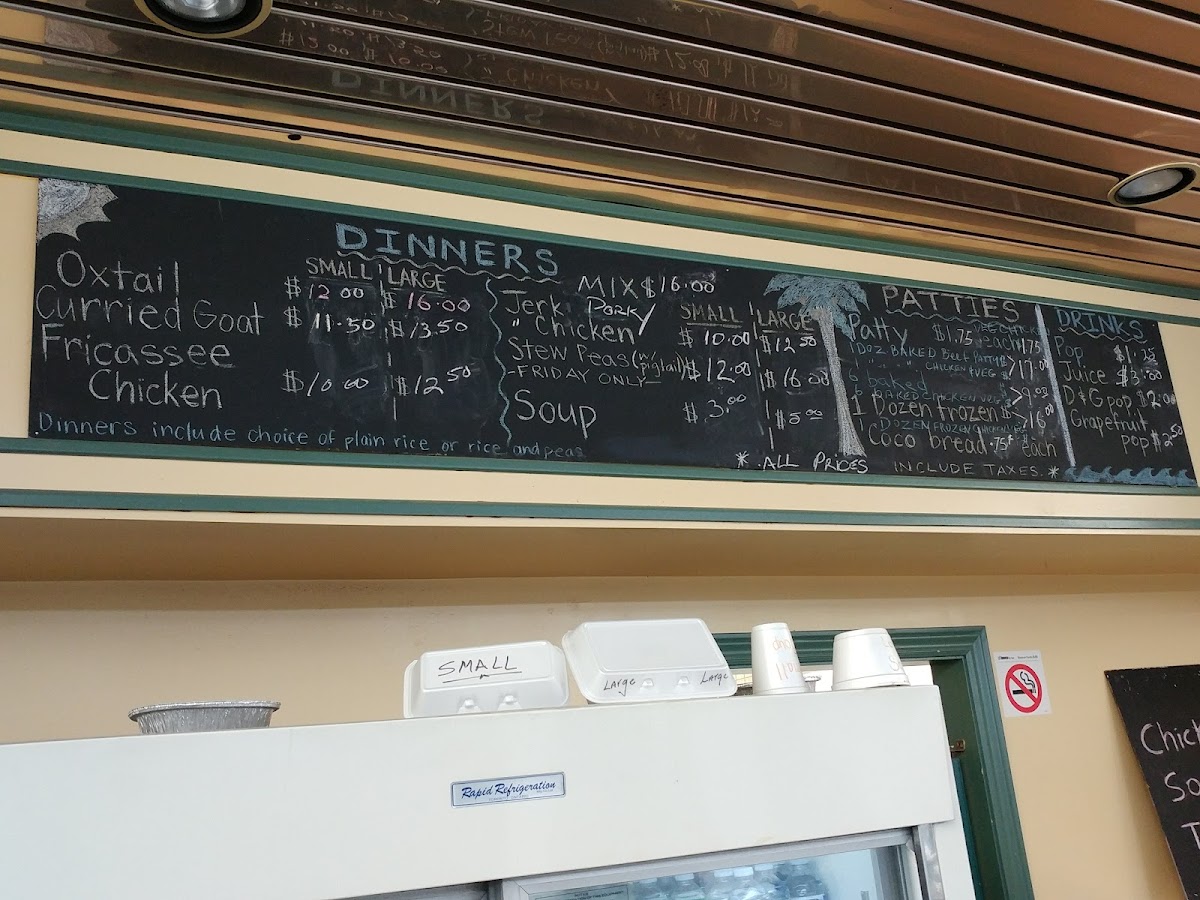 DINNERS
SMALL LARGE
Oxtail $12.00 $16.00
Curried Goat $11.50 $13.50
Fricassee
Chicken $10.00 $12.50
Dinners include choice of plain rice or rice and peas
MIX $16.00
SMALL LARGE
Jerk Pork/
" Chicken $10.00 $12.50
Stew Peas (w/ pigtail) $12.00 $16.00
-FRIDAY ONLY-
Soup $3.00 $5.00
* ALL PRICES INCLUDE TAXES. *
PATTIES
Patty $1.75 each
1 DOZ BAKED BEEF PATTIES
CHICKEN & VEG
6 baked
1 Dozen frozen
1 DOZEN FROZEN CHICKEN
Coco bread .75¢ each
DRINKS
Pop
Juice $3.00
D&G pop
Grapefruit
pop $2.50
SMALL
Large Large
Rapid Refrigeration
Chick
So
T